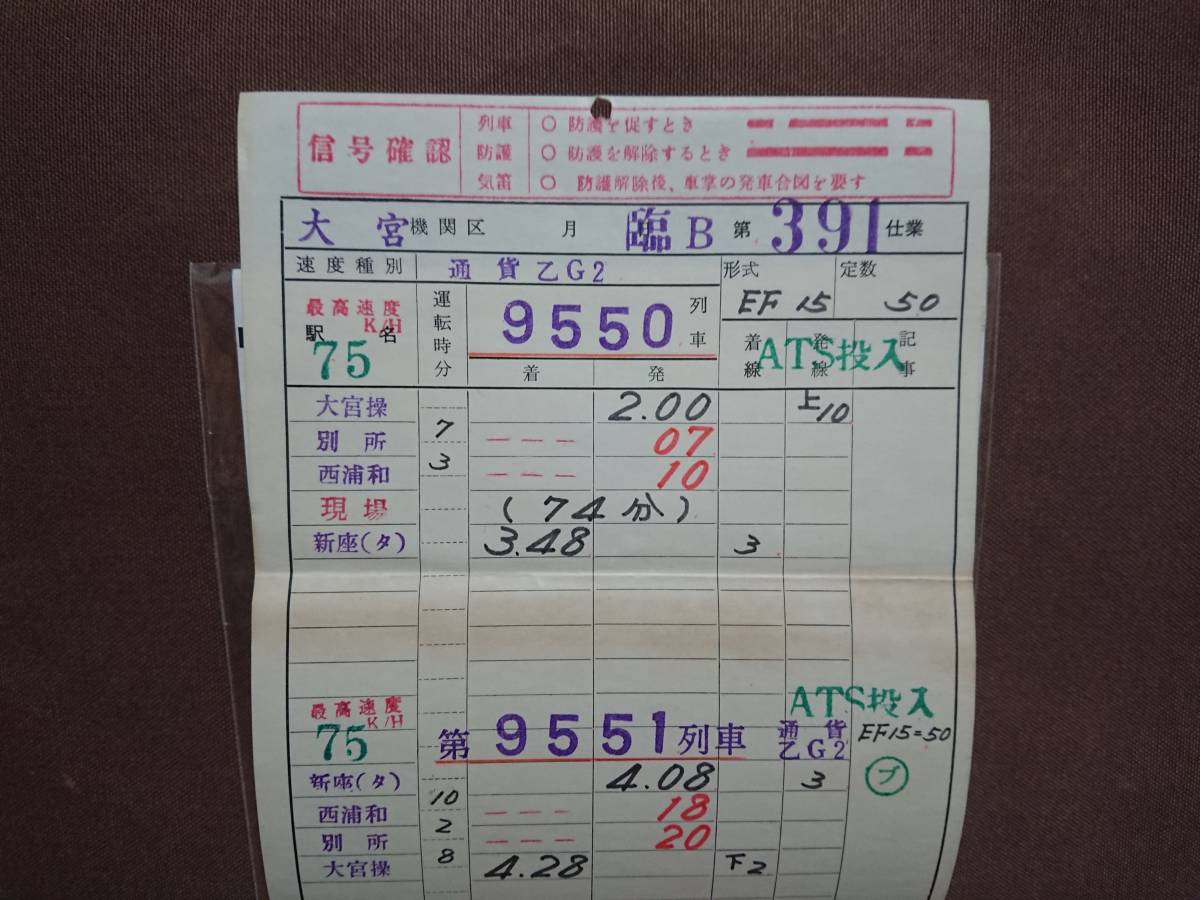 信号確認
列車 ○ 防護を促すとき
防護 ○ 防護を解除するとき
気笛 ○ 防護解除後、車掌の発車合図を要す
大宮機関区 月 臨B 第391仕業
速度種別 通貨乙G2 形式 定数
EF15 50
最高速度 K/H 75
駅名 運転時分 9550列車 着線 発線 記事
ATS投入
着 発
大宮操 2.00 上10
7
別所 --- 07
3
西浦和 --- 10
現場 (74分)
新座(タ) 3.48 3
最高速度 K/H 75
第9551列車 通貨乙G2
ATS投入
EF15=50
プ
新座(タ) 4.08 3
10
西浦和 --- 18
2
別所 --- 20
8
大宮操 4.28 下2